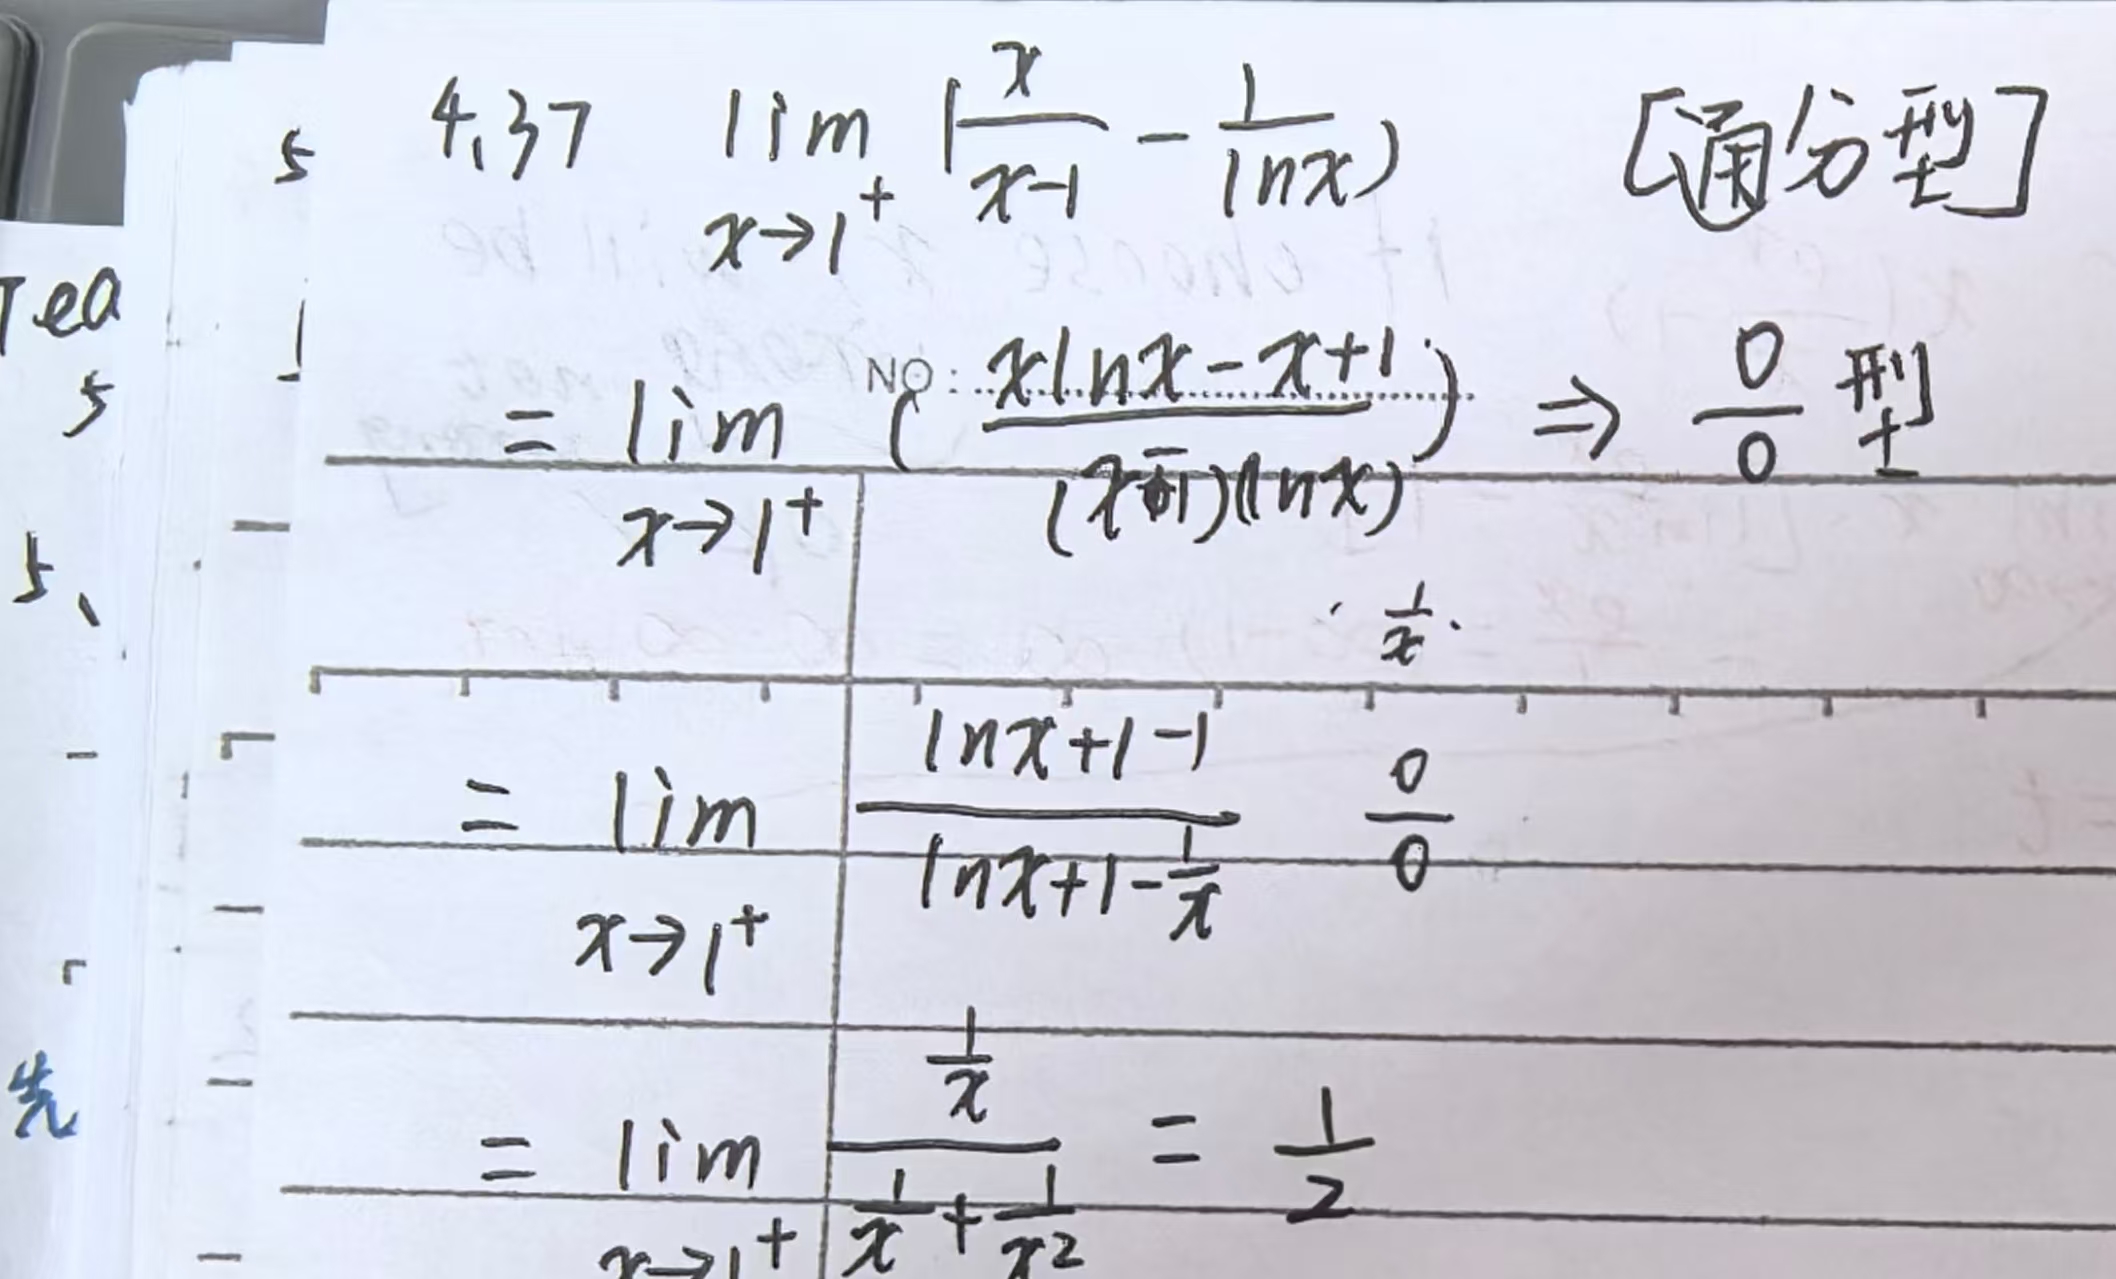 4.37 lim x→1⁺ (x/(x-1) - 1/lnx) [通分型]
= lim x→1⁺ ((xlnx-x+1)/((x-1)(lnx))) ⇒ 0/0 型
NO:
1/x
= lim x→1⁺ (lnx+1-1)/(lnx+1-1/x) 0/0
= lim x→1⁺ (1/x)/(1/x+1/x²) = 1/2
Tea
5
5
5、
先